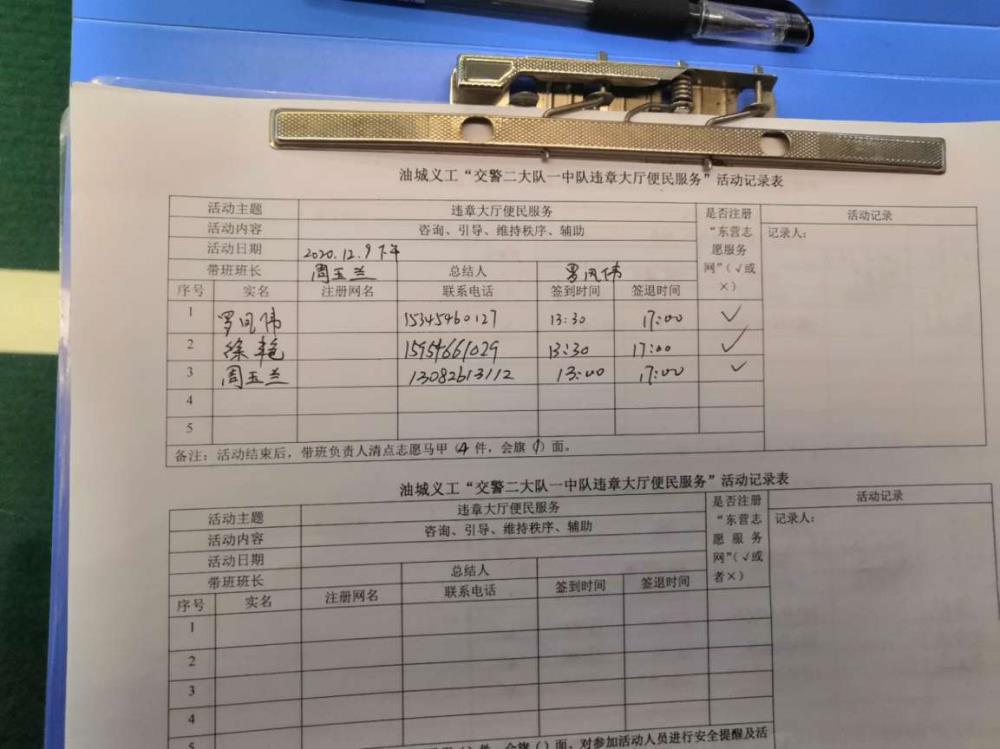 油城义工“交警二大队一中队违章大厅便民服务”活动记录表
活动主题 违章大厅便民服务 是否注册“东营志愿服务网”（√或×） 活动记录
活动内容 咨询、引导、维持秩序、辅助 记录人：
活动日期 2020.12.9下午
带班班长 周玉兰 总结人 罗凤伟
序号 实名 注册网名 联系电话 签到时间 签退时间
1 罗凤伟 15345460127 13:30 17:00 √
2 徐艳 15954661029 13:30 17:00 √
3 周玉兰 13082613112 13:00 17:00 √
4
5
备注：活动结束后，带班负责人清点志愿马甲（4件，会旗（1）面。
油城义工“交警二大队一中队违章大厅便民服务”活动记录表
活动主题 违章大厅便民服务 是否注册“东营志愿服务网”（√或者×） 活动记录
活动内容 咨询、引导、维持秩序、辅助 记录人：
活动日期
带班班长 总结人
序号 实名 注册网名 联系电话 签到时间 签退时间
1
2
3
4
5
）件，会旗（）面，对参加活动人员进行安全提醒及活